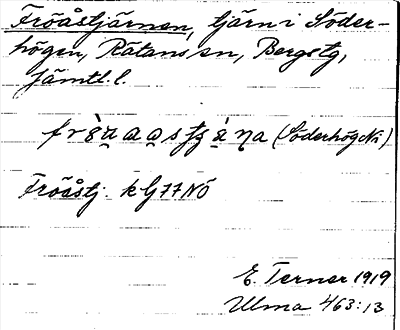 Fröåstjärnen, tjärn i Söder-
högen, Rätans sn, Bergs tg,
Jämtl. l.
(Söderhögen)
Fröåstj. kG77NÖ
E. Terner 1919
Ulma 463:13